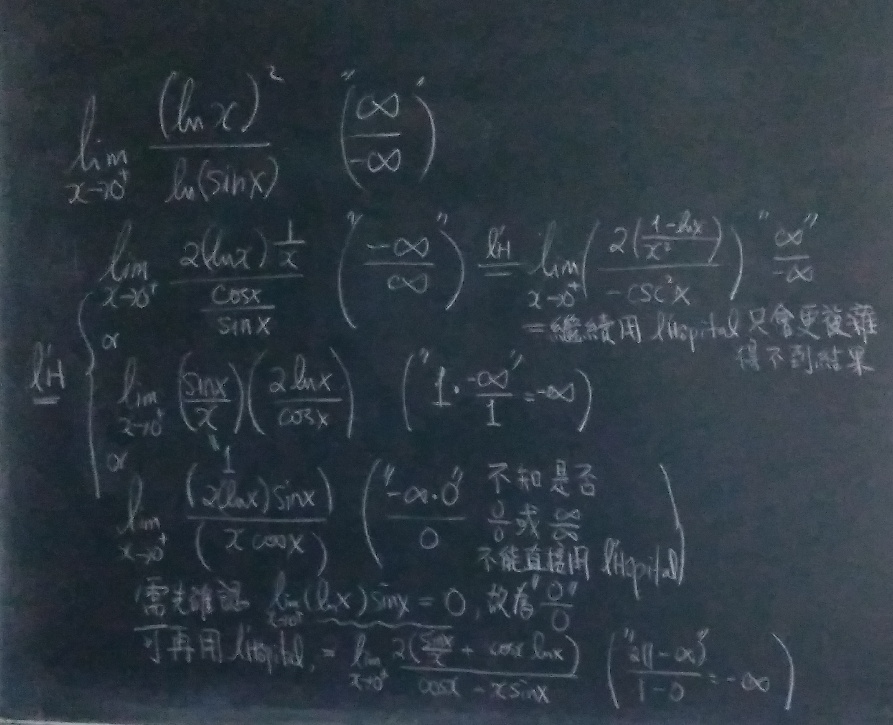 lim x→0⁺ (ln x)² / ln(sin x) ("∞ / -∞")
lim x→0⁺ 2(ln x) 1/x / (cos x / sin x) ("-∞ / ∞") l'H = lim x→0⁺ (2((1-ln x)/x²) / -csc²x) "∞ / -∞"
= 繼續用 l'Hopital 只會更複雜
得不到結果
or
l'H = lim x→0⁺ (sin x / x)(2 ln x / cos x) ("1 · -∞ / 1" = -∞)
1
or
lim x→0⁺ (2(ln x) sin x) / (x cos x) ("-∞ · 0" / 0 不知是否
0/0 或 ∞/∞
不能直接用 l'Hopital)
需先確認 lim x→0⁺ (ln x) sin x = 0, 故為 "0/0"
可再用 l'Hopital, = lim x→0⁺ 2(sin x / x + cos x ln x) / (cos x - x sin x) ("2(1-∞)" / 1-0 = -∞)